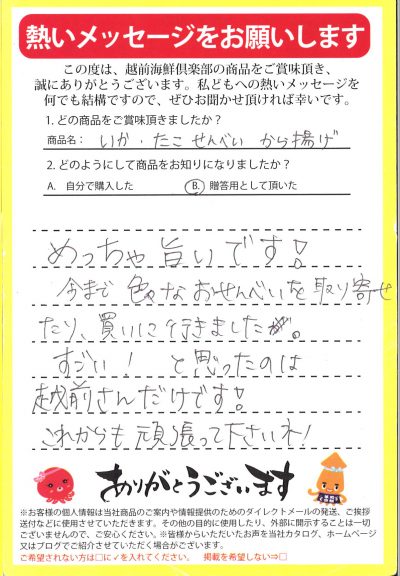 熱いメッセージをお願いします
この度は、越前海鮮倶楽部の商品をご賞味頂き、
誠にありがとうございます。私どもへの熱いメッセージを
何でも結構ですので、ぜひお聞かせ頂ければ幸いです。
1. どの商品をご賞味頂きましたか？
商品名： いか・たこせんべい から揚げ
2. どのようにして商品をお知りになりましたか？
A. 自分で購入した B. 贈答用として頂いた
めっちゃ旨いです!
今まで色々なおせんべいを取り寄せ
たり、買いに行きましたが。
すごい! と思ったのは
越前さんだけです!
これからも頑張って下さいネ!
ありがとうございます
※お客様の個人情報は当社商品のご案内や情報提供のためのダイレクトメールの発送、ご挨拶
送付などに使用させていただきます。その他の目的に使用したり、外部に開示することは一切
ございませんので、ご安心ください。※皆様からいただいたお声を当社カタログ、ホームページ
又はブログでご紹介させていただく場合がございます。
ご希望されない方は□に✓を入れてください。 掲載を希望しない⇒□